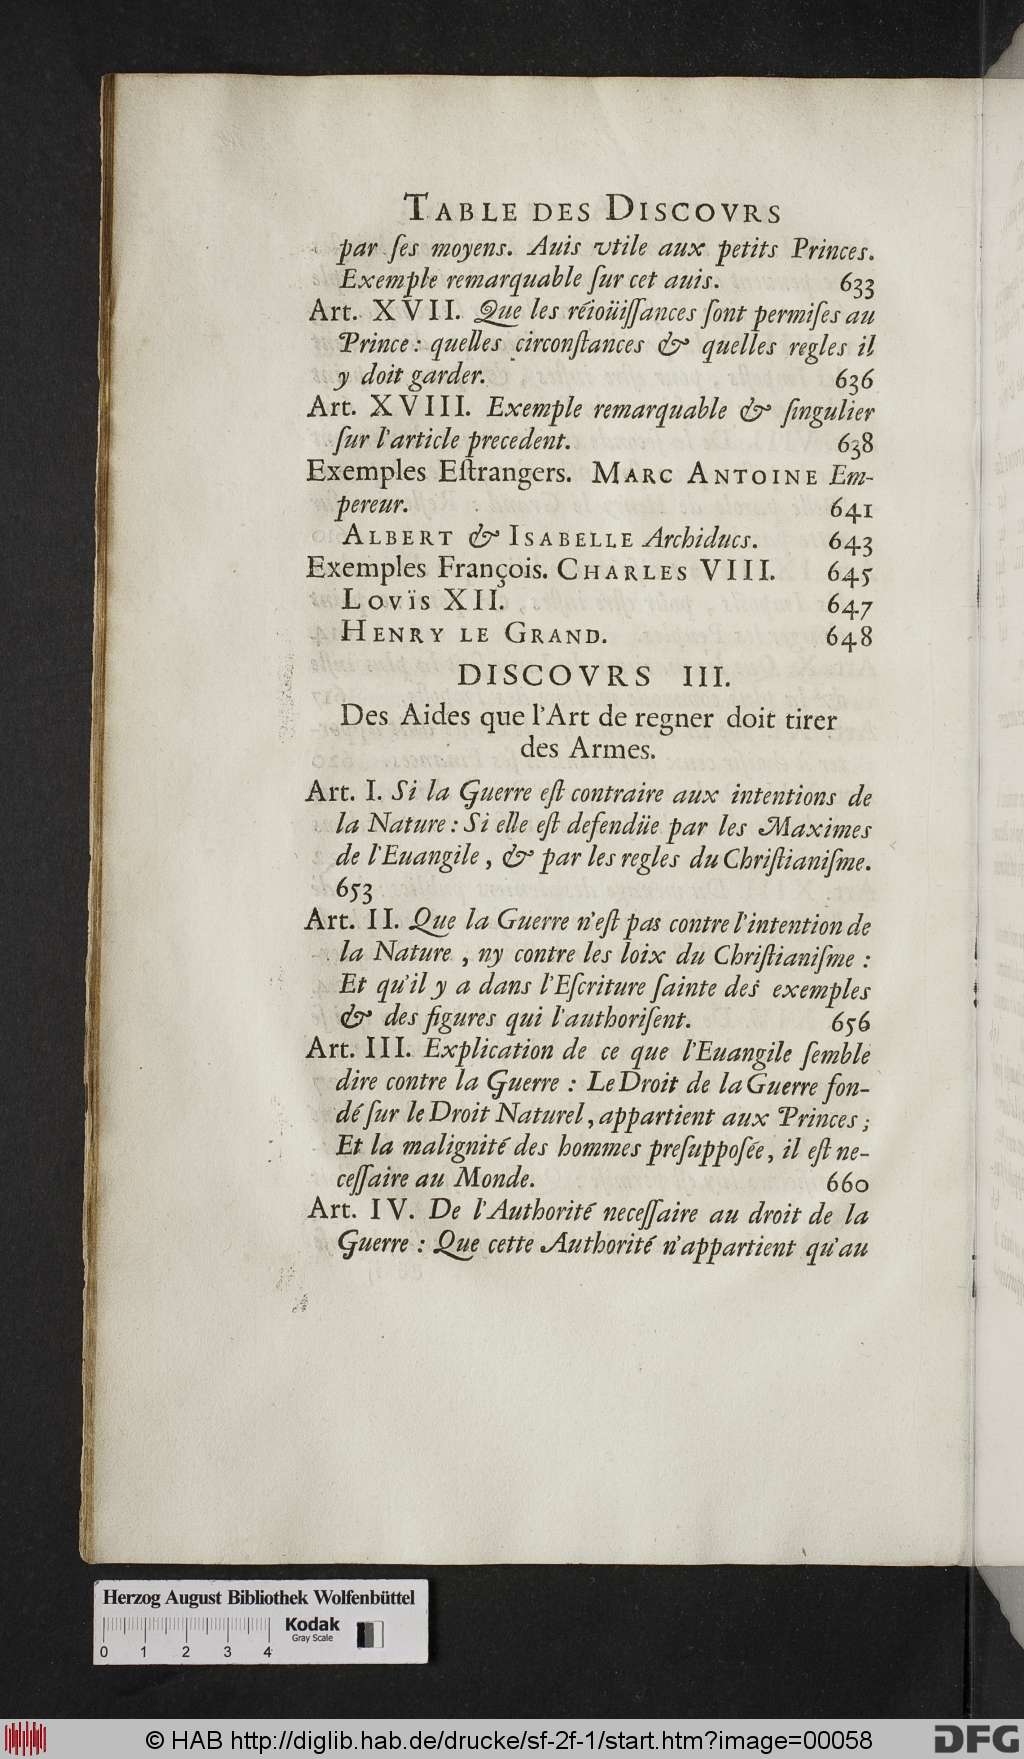 TABLE DES DISCOVRS
par ſes moyens. Auis vtile aux petits Princes.
Exemple remarquable ſur cet auis. 633
Art. XVII. Que les réioüiſſances ſont permiſes au
Prince : quelles circonſtances & quelles regles il
y doit garder. 636
Art. XVIII. Exemple remarquable & ſingulier
ſur l'article precedent. 638
Exemples Eſtrangers. MARC ANTOINE Em-
pereur. 641
ALBERT & ISABELLE Archiducs. 643
Exemples François. CHARLES VIII. 645
LOVÏS XII. 647
HENRY LE GRAND. 648
DISCOVRS III.
Des Aides que l'Art de regner doit tirer
des Armes.
Art. I. Si la Guerre eſt contraire aux intentions de
la Nature : Si elle eſt defendüe par les Maximes
de l'Euangile, & par les regles du Chriſtianiſme.
653
Art. II. Que la Guerre n'eſt pas contre l'intention de
la Nature, ny contre les loix du Chriſtianiſme :
Et qu'il y a dans l'Eſcriture ſainte des exemples
& des figures qui l'authoriſent. 656
Art. III. Explication de ce que l'Euangile ſemble
dire contre la Guerre : Le Droit de la Guerre fon-
dé ſur le Droit Naturel, appartient aux Princes ;
Et la malignité des hommes preſuppoſée, il eſt ne-
ceſſaire au Monde. 660
Art. IV. De l'Authorité neceſſaire au droit de la
Guerre : Que cette Authorité n'appartient qu'au
Herzog August Bibliothek Wolfenbüttel
0 1 2 3 4
Kodak
Gray Scale
© HAB http://diglib.hab.de/drucke/sf-2f-1/start.htm?image=00058
DFG